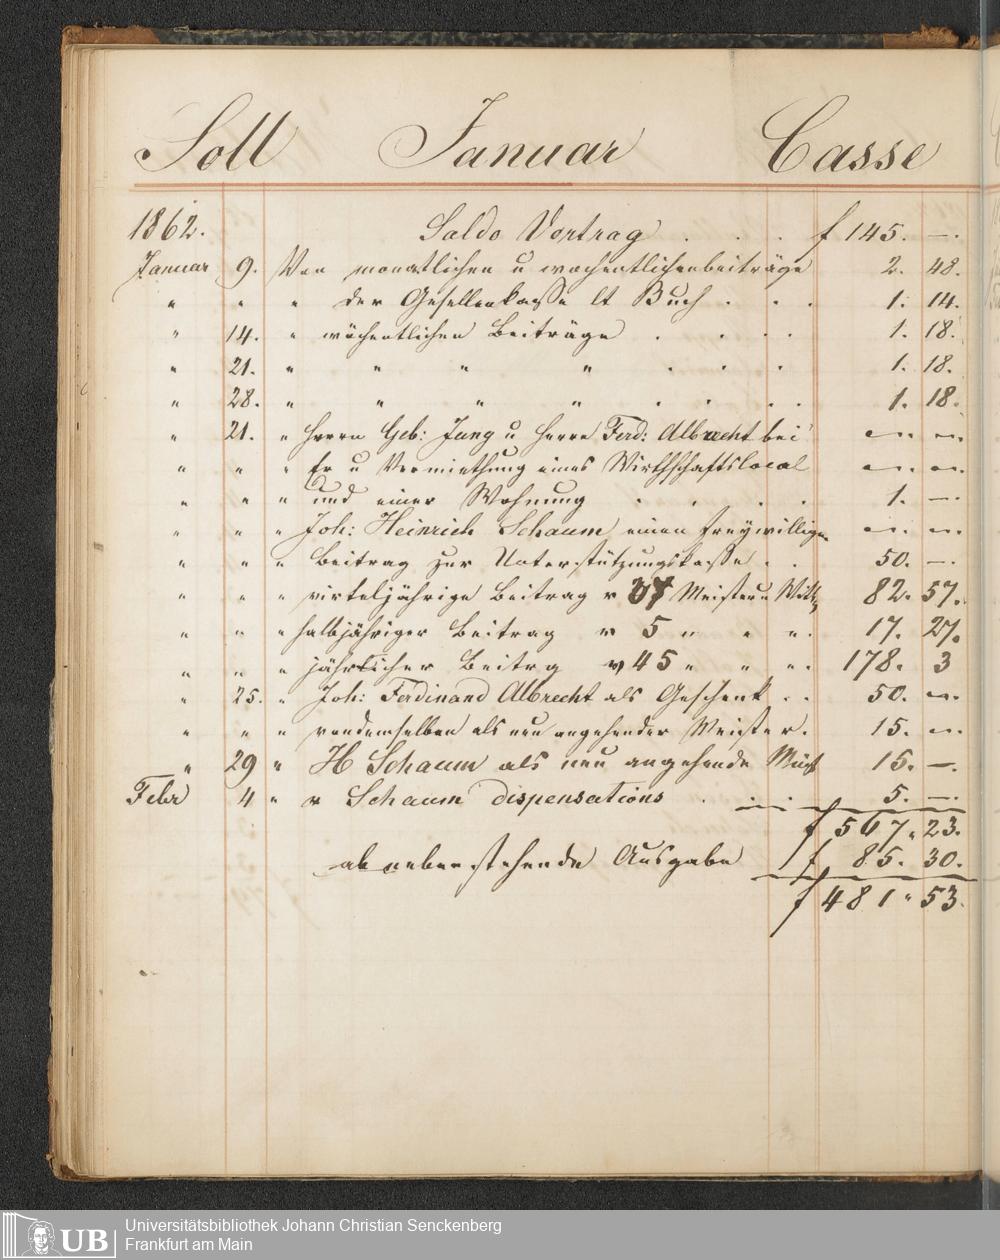 Soll Januar Casse
1862. Saldo Vortrag . . . f 145. —.
Januar 9. Von monatlichen u wochentlichenbeiträge 2. 48.
" " " der Gesellenkasse lt Buch . . . 1. 14.
" 14. " wöchentlichen Beiträge . . . . 1. 18.
" 21. " " " " . . . 1. 18.
" 28. " " " " . . . . 1. 18.
" 21. " Herrn Geb: Jung u Herrn Ferd: Albrecht bei —. —.
" " " Er u Vermiethung eines Wirthschaftslocal —. —.
" " " und einer Wohnung . . . . 1. —.
" " " Joh: Heinrich Schaum einen freywilligen —. —.
" " " Beitrag zur Unterstützungskasse . . 50. —.
" " " virteljährige Beitrag v 37 Meister u Witt 82. 57.
" " " halbjähriger Beitrag v 5 " " ". 17. 27.
" " " jährlicher Beitrg v 45 " " ". 178. 3
" 25. " Joh: Ferdinand Albrecht als Geschenk . . 50. —.
" " " vondemselben als neu angehender Meister. 15. —.
" 29 " H Schaum als neu angehende Meist 15. —.
Febr 4 " v Schaum dispensations . . . 5. —.
f 567. 23.
ab nebenstehende Ausgabe f 85. 30.
f 481. 53.
UB Universitätsbibliothek Johann Christian Senckenberg
Frankfurt am Main